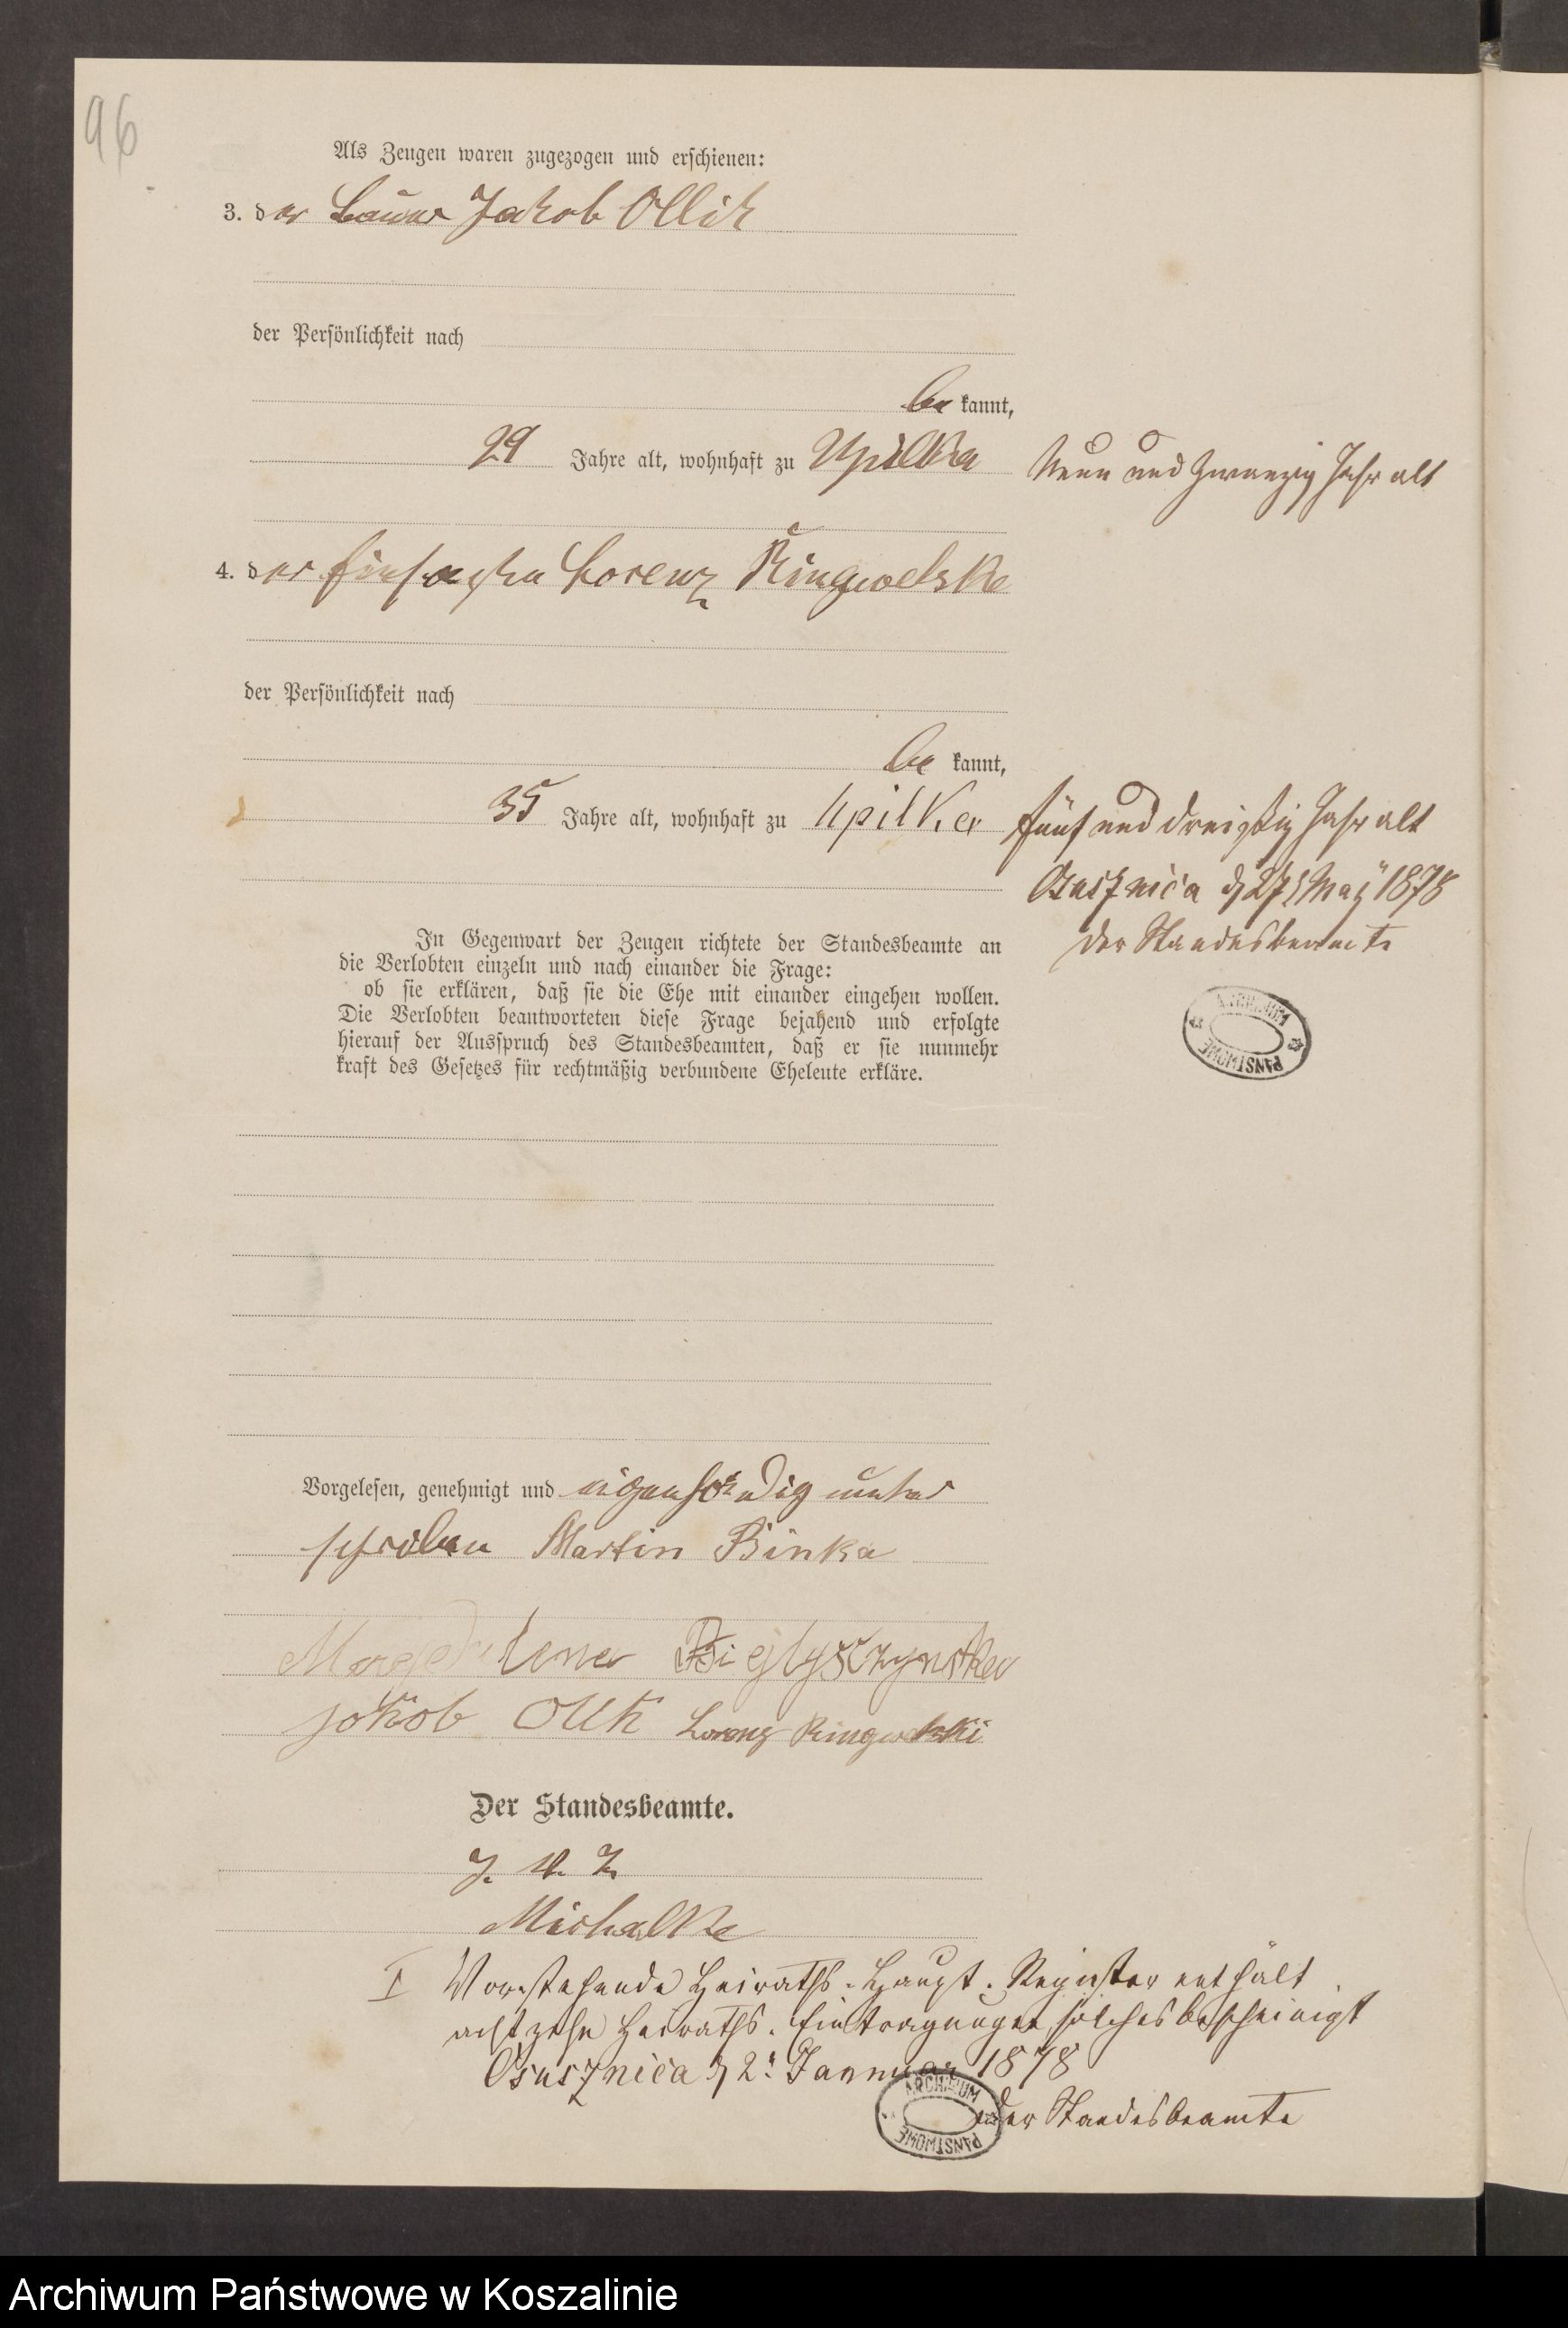 96
Als Zeugen waren zugezogen und erschienen:
3. der Bauer Jakob Ollik
der Persönlichkeit nach
be kannt,
29 Jahre alt, wohnhaft zu Upilka
Neun und Zwanzig Jahr alt
4. der Lorenz Ringwelske
der Persönlichkeit nach
be kannt,
35 Jahre alt, wohnhaft zu Upilka
fünf und dreißig Jahr alt
Osusznica d 27t May 1878
Der Standesbeamte
In Gegenwart der Zeugen richtete der Standesbeamte an
die Verlobten einzeln und nach einander die Frage:
ob sie erklären, daß sie die Ehe mit einander eingehen wollen.
Die Verlobten beantworteten diese Frage bejahend und erfolgte
hierauf der Ausspruch des Standesbeamten, daß er sie nunmehr
kraft des Gesetzes für rechtmäßig verbundene Eheleute erkläre.
ARCHIWUM PAŃSTWOWE
Vorgelesen, genehmigt und eigenhändig unter
schrieben Martin Binka
jakob Lorenz Ringwelski
Der Standesbeamte.
J. V. Z.
Michalke
I Vorstehende Heiraths-Haupt-Register enthält
achtzehn Heiraths-Eintragungen, solches bescheinigt
Osusznica d 2t Januar 1878
ARCHIWUM PAŃSTWOWE
Der Standesbeamte
Archiwum Państwowe w Koszalinie